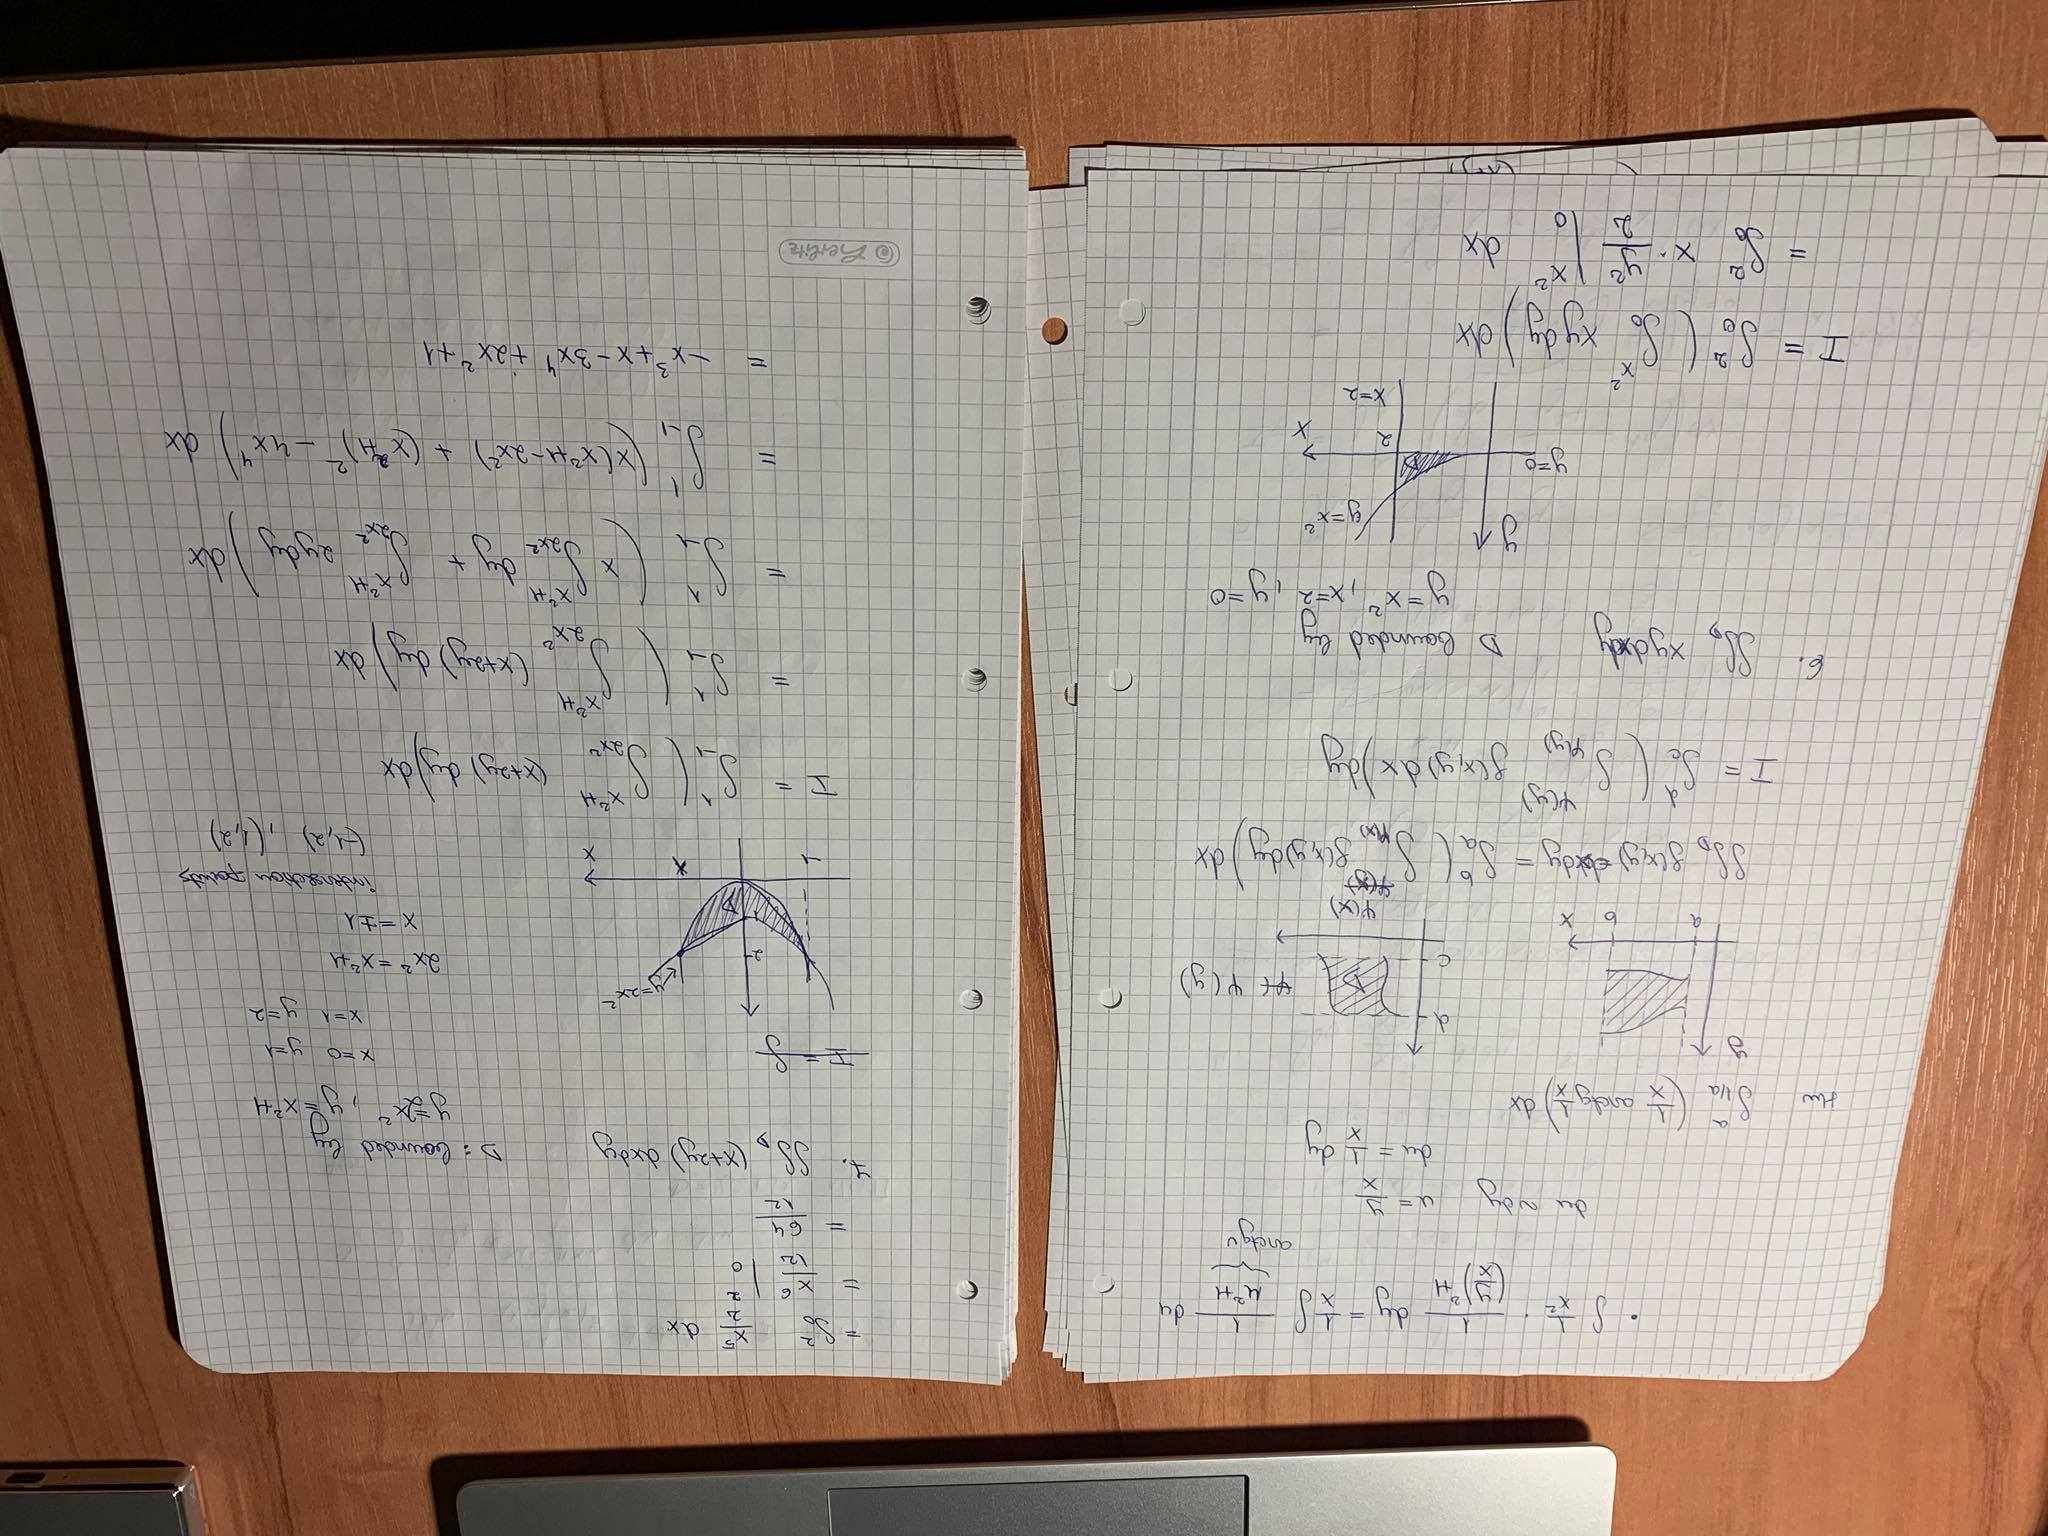 • ∫ 1/x² · 1/((y/x)²+1) dy = 1/x ∫ 1/(u²+1) du
arctg u
du ~ dy u = y/x
du = 1/x dy
HW ∫_{1/a}^{a} (1/x arctg 1/x) dx
y
d
D
Ψ(y)
c
a b x
Ψ(x)
∬_D f(x,y) dxdy = ∫_a^b ( ∫_{φ(x)}^{Ψ(x)} f(x,y) dy ) dx
I = ∫_c^d ( ∫_{φ(y)}^{Ψ(y)} f(x,y) dx ) dy
6. ∬_D xy dxdy D bounded by
y = x², x=2, y=0
y
y=x²
y=0 D
2 x
x=2
I = ∫_0^2 ( ∫_0^{x²} xy dy ) dx
= ∫_0^2 x · y²/2 |_0^{x²} dx
= ∫_0^2 x⁵/2 dx
= x⁶/12 |_0^2
= 64/12
7. ∬_D (x+2y) dxdy D: bounded by
y=2x², y=x²+1
I = ∫
x=0 y=1
x=1 y=2
y=2x²
2
1
D
-1 x
2x² = x²+1
x = ±1
intersection points
(-1,2), (1,2)
I = ∫_{-1}^1 ( ∫_{2x²}^{x²+1} (x+2y) dy ) dx
= ∫_{-1}^1 ( ∫_{2x²}^{x²+1} (x+2y) dy ) dx
= ∫_{-1}^1 ( x ∫_{2x²}^{x²+1} dy + ∫_{2x²}^{x²+1} 2y dy ) dx
= ∫_{-1}^1 (x(x²+1-2x²) + (x²+1)² - 4x⁴) dx
= -x³+x-3x⁴+2x²+1
© Herlitz